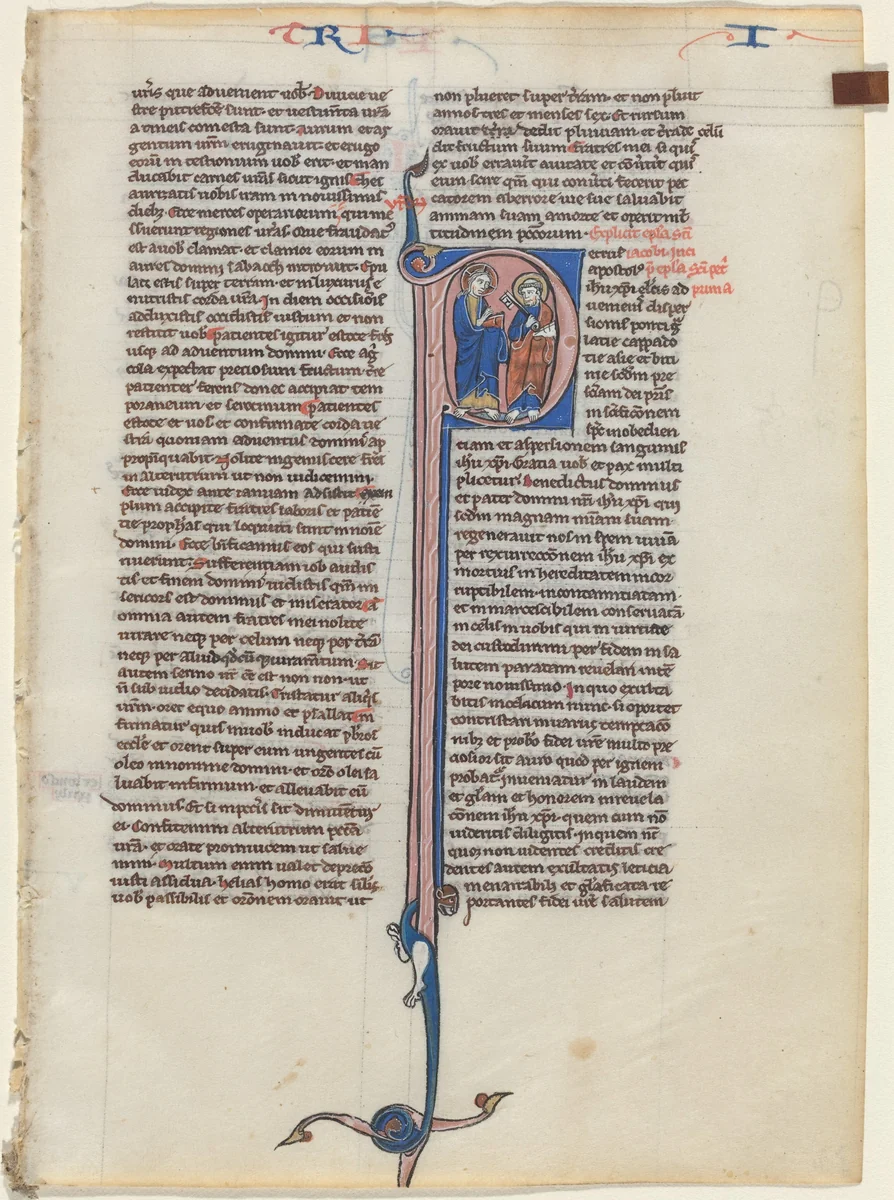 TRI I
uris que aduenient uob. Diuicie ue
stre putrefce sunt. et uestimta ura
a tineis comesta sunt. Aurum et ar
gentum urm eruginauit. et erugo
eoru in testionium uob erit. et man
ducabit carnes uras sicut ignis. Thes
aurizatis uobis iram in nouissimis
dieb. Ecce merces operariorum qui me
ssuerunt regiones uras. que fraudat
est a uob clamat. et clamor eorum in
aures domini sabaoth introiuit. Epu
lati estis super terram. et in luxuriis e
nutristis corda ura. In diem occisiois
addixistis occidistis iustum et non
restitit uob. Patientes igitur estote frs
usq ad aduentum domini. Ecce agi
cola expectat preciosum fructum tre
patienter ferens donec accipiat tem
poraneum et serotinum. Patientes
estote et uos et confirmate corda ue
stra quoniam aduentus domini ap
propinquabit. Nolite ingemiscere fres
in alterutrum ut non iudicemini.
Ecce iudex ante ianuam adsistit. Exem
plum accipite fratres laboris et patie
tie prophas qui locuti sunt in noie
domini. Ecce btificamus eos qui susti
nuerunt. Sufferentiam iob audis
tis et finem domini uidistis qm mi
sericors est dominus et miserator. A
omnia autem fratres mei nolite
iurare neq per celum neq per tra
neq per aliud qdcu q iuramtum. Sit
autem sermo ur e est non non. ut
n sub iudio decidatis. Tristatur aliqis
urm. oret equo animo et psallat. In
firmatur quis in uob inducat pbros
eccle et orent super eum ungentes eu
oleo in nomine domini. et oro olei sa
luabit infirmum. et alleuabit eu
dominus. Et si in peccis sit dimittetur
ei. Confitemini alterutrum pecca
ura. et orate pro inuicem ut salue
mini. Multum enim ualet depreco
iusti assidua. Helias homo erat silis
uob passibilis et orone orauit ut
non plueret super tram. et non pluit
annos tres et menses sex. Et rursum
orauit terra dedit pluuiam et tra de celu
dit fructum suum. Fratres mei si quis
ex uob errauit a uitate et couitit quis
eum scire qm qui conuti fecerit pec
catorem ab errore uie sue saluabit
animam suam a morte et operit ml
titudinem pccorum. Explicit epla sci
iacobi. Inci
p epla sci pet
prima
etrus
apostolus
ihu xpi elcis ad
uenienis disper
sionis ponti gal
latie cappado
tie asie et biti
nie scdm pre
sciam dei pris
in scificonem
spc in obedien
tiam et aspersionem sanguinis
ihu xpi. Gratia uob et pax multi
plicetur. Benedictus dominus
et pater domini nri ihu xpi qui
scdm magnam miam suam
regenerauit nos in spem uiua
per resurrecconem ihu xpi ex
mortuis in hereditatem incor
ruptibilem. incontaminatam
et inmarcescibilem conseruata
in celis in uobis qui in uirtute
dei custodimini. per fidem in sa
lutem paratam reuelari in te
pore nouissimo. In quo exulta
bitis modicum nunc. si oportet
contristari in uariis temptaco
nibz et probo fidei ure multo pre
ciosior sit auro quod per ignem
probat. inueniatur in laudem
et glam et honorem in reuela
conem ihu xpi. quem cum no
uideritis diligitis. in quem nc
quoq non uidentes creditis cre
dentes autem exultatis leticia
in enarrabili et glificata re
portantes fidei ure salutem